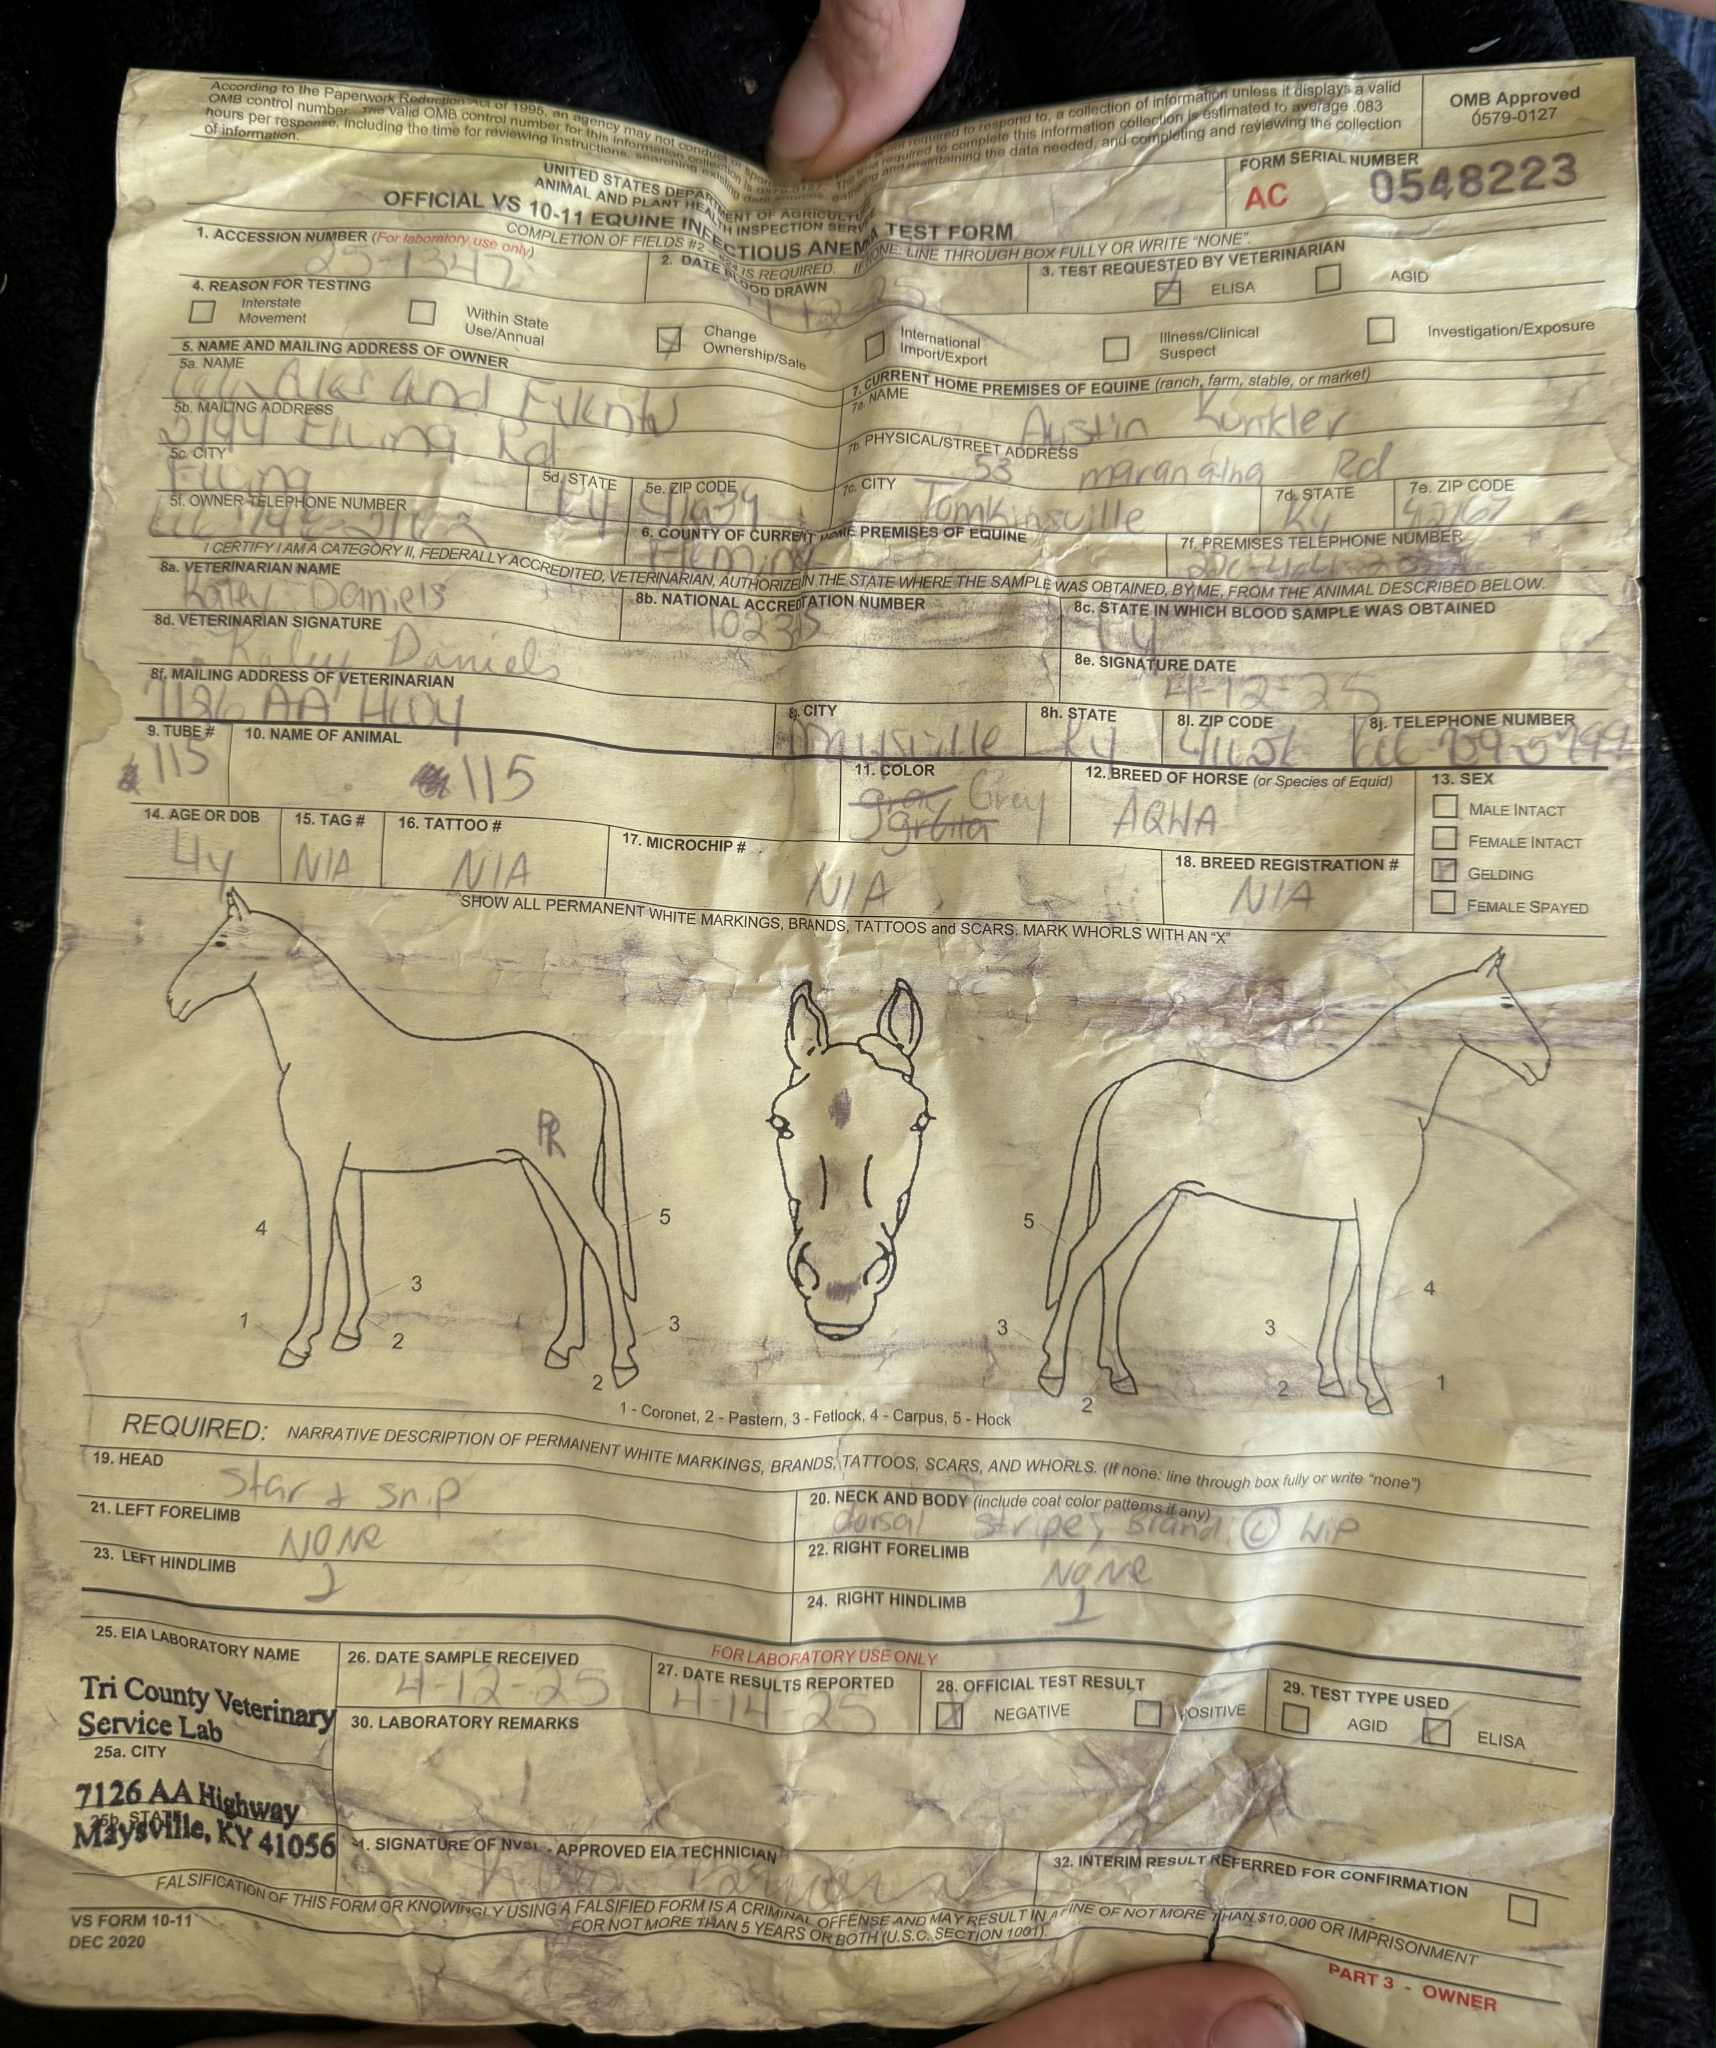 According to the Paperwork Reduction Act of 1995, an agency may not conduct or required to respond to, a collection of information unless it displays a valid
OMB control number. The valid OMB control number for this information collection is required to complete this information collection is estimated to average .083
hours per response, including the time for reviewing instructions, searching existing and maintaining the data needed, and completing and reviewing the collection
of information.
OMB Approved
0579-0127
FORM SERIAL NUMBER
AC 0548223
UNITED STATES DEPARTMENT OF AGRICULTURE
ANIMAL AND PLANT HEALTH INSPECTION SERV
OFFICIAL VS 10-11 EQUINE INFECTIOUS ANEM A TEST FORM
COMPLETION OF FIELDS #2 IS REQUIRED. IF NONE: LINE THROUGH BOX FULLY OR WRITE "NONE".
1. ACCESSION NUMBER (For laboratory use only)
25-1347
2. DATE BLOOD DRAWN
3. TEST REQUESTED BY VETERINARIAN
ELISA
AGID
4. REASON FOR TESTING
Interstate Movement
Within State Use/Annual
Change Ownership/Sale
International Import/Export
Illness/Clinical Suspect
Investigation/Exposure
5. NAME AND MAILING ADDRESS OF OWNER
5a. NAME
and
5b. MAILING ADDRESS
Rd
5c. CITY
5d. STATE
Ky
5e. ZIP CODE
5f. OWNER TELEPHONE NUMBER
6. COUNTY OF CURRENT HOME PREMISES OF EQUINE
Fleming
7. CURRENT HOME PREMISES OF EQUINE (ranch, farm, stable, or market)
7a. NAME
Austin Kunkler
7b. PHYSICAL/STREET ADDRESS
53 Rd
7c. CITY
Tomkinsville
7d. STATE
Ky
7e. ZIP CODE
42167
7f. PREMISES TELEPHONE NUMBER
I CERTIFY I AM A CATEGORY II, FEDERALLY ACCREDITED, VETERINARIAN, AUTHORIZE IN THE STATE WHERE THE SAMPLE WAS OBTAINED, BY ME, FROM THE ANIMAL DESCRIBED BELOW.
8a. VETERINARIAN NAME
Kaley Daniels
8b. NATIONAL ACCREDITATION NUMBER
8c. STATE IN WHICH BLOOD SAMPLE WAS OBTAINED
Ky
8d. VETERINARIAN SIGNATURE
Kaley Daniels
8e. SIGNATURE DATE
4-12-25
8f. MAILING ADDRESS OF VETERINARIAN
7126 AA Hwy
CITY
Maysville
8h. STATE
Ky
8I. ZIP CODE
41056
8j. TELEPHONE NUMBER
9. TUBE #
115
10. NAME OF ANIMAL
115
11. COLOR
Grey
12. BREED OF HORSE (or Species of Equid)
AQHA
13. SEX
MALE INTACT
FEMALE INTACT
GELDING
FEMALE SPAYED
14. AGE OR DOB
4y
15. TAG #
N/A
16. TATTOO #
N/A
17. MICROCHIP #
N/A
18. BREED REGISTRATION #
N/A
SHOW ALL PERMANENT WHITE MARKINGS, BRANDS, TATTOOS and SCARS. MARK WHORLS WITH AN "X"
4 3 1 2 5 3 2
5 3 2 4 3 2 1
1 - Coronet, 2 - Pastern, 3 - Fetlock, 4 - Carpus, 5 - Hock
REQUIRED: NARRATIVE DESCRIPTION OF PERMANENT WHITE MARKINGS, BRANDS, TATTOOS, SCARS, AND WHORLS. (If none: line through box fully or write "none")
19. HEAD
Star & Snip
20. NECK AND BODY (include coat color patterns if any)
dorsal stripe, Brand (L) hip
21. LEFT FORELIMB
NONE
22. RIGHT FORELIMB
NONE
23. LEFT HINDLIMB
24. RIGHT HINDLIMB
FOR LABORATORY USE ONLY
25. EIA LABORATORY NAME
Tri County Veterinary
Service Lab
25a. CITY
7126 AA Highway
25b. STATE
Maysville, KY 41056
26. DATE SAMPLE RECEIVED
4-12-25
27. DATE RESULTS REPORTED
4-14-25
28. OFFICIAL TEST RESULT
NEGATIVE
POSITIVE
29. TEST TYPE USED
AGID
ELISA
30. LABORATORY REMARKS
31. SIGNATURE OF NVSL - APPROVED EIA TECHNICIAN
32. INTERIM RESULT REFERRED FOR CONFIRMATION
FALSIFICATION OF THIS FORM OR KNOWINGLY USING A FALSIFIED FORM IS A CRIMINAL OFFENSE AND MAY RESULT IN A FINE OF NOT MORE THAN $10,000 OR IMPRISONMENT
FOR NOT MORE THAN 5 YEARS OR BOTH (U.S.C. SECTION 1001).
VS FORM 10-11
DEC 2020
PART 3 - OWNER